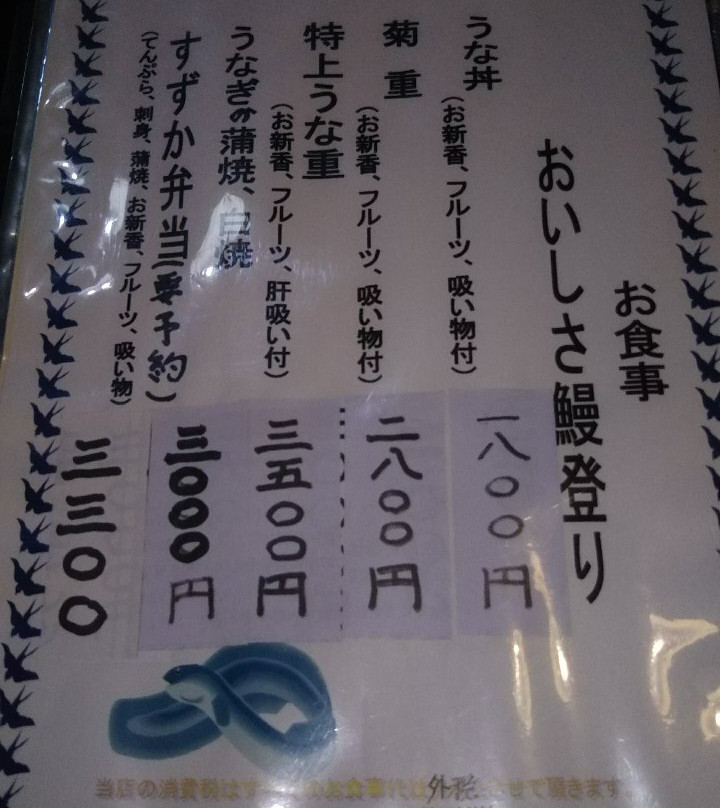 お食事
おいしさ鰻登り
うな丼
(お新香、フルーツ、吸い物付)
一八〇〇円
菊重
(お新香、フルーツ、吸い物付)
二八〇〇円
特上うな重
(お新香、フルーツ、肝吸い付)
三五〇〇円
うなぎの蒲焼、白焼
三〇〇〇円
すずか弁当(要予約)
(てんぷら、刺身、蒲焼、お新香、フルーツ、吸い物)
三三〇〇
当店の消費税はす のお食事代は外税 させて頂きます。